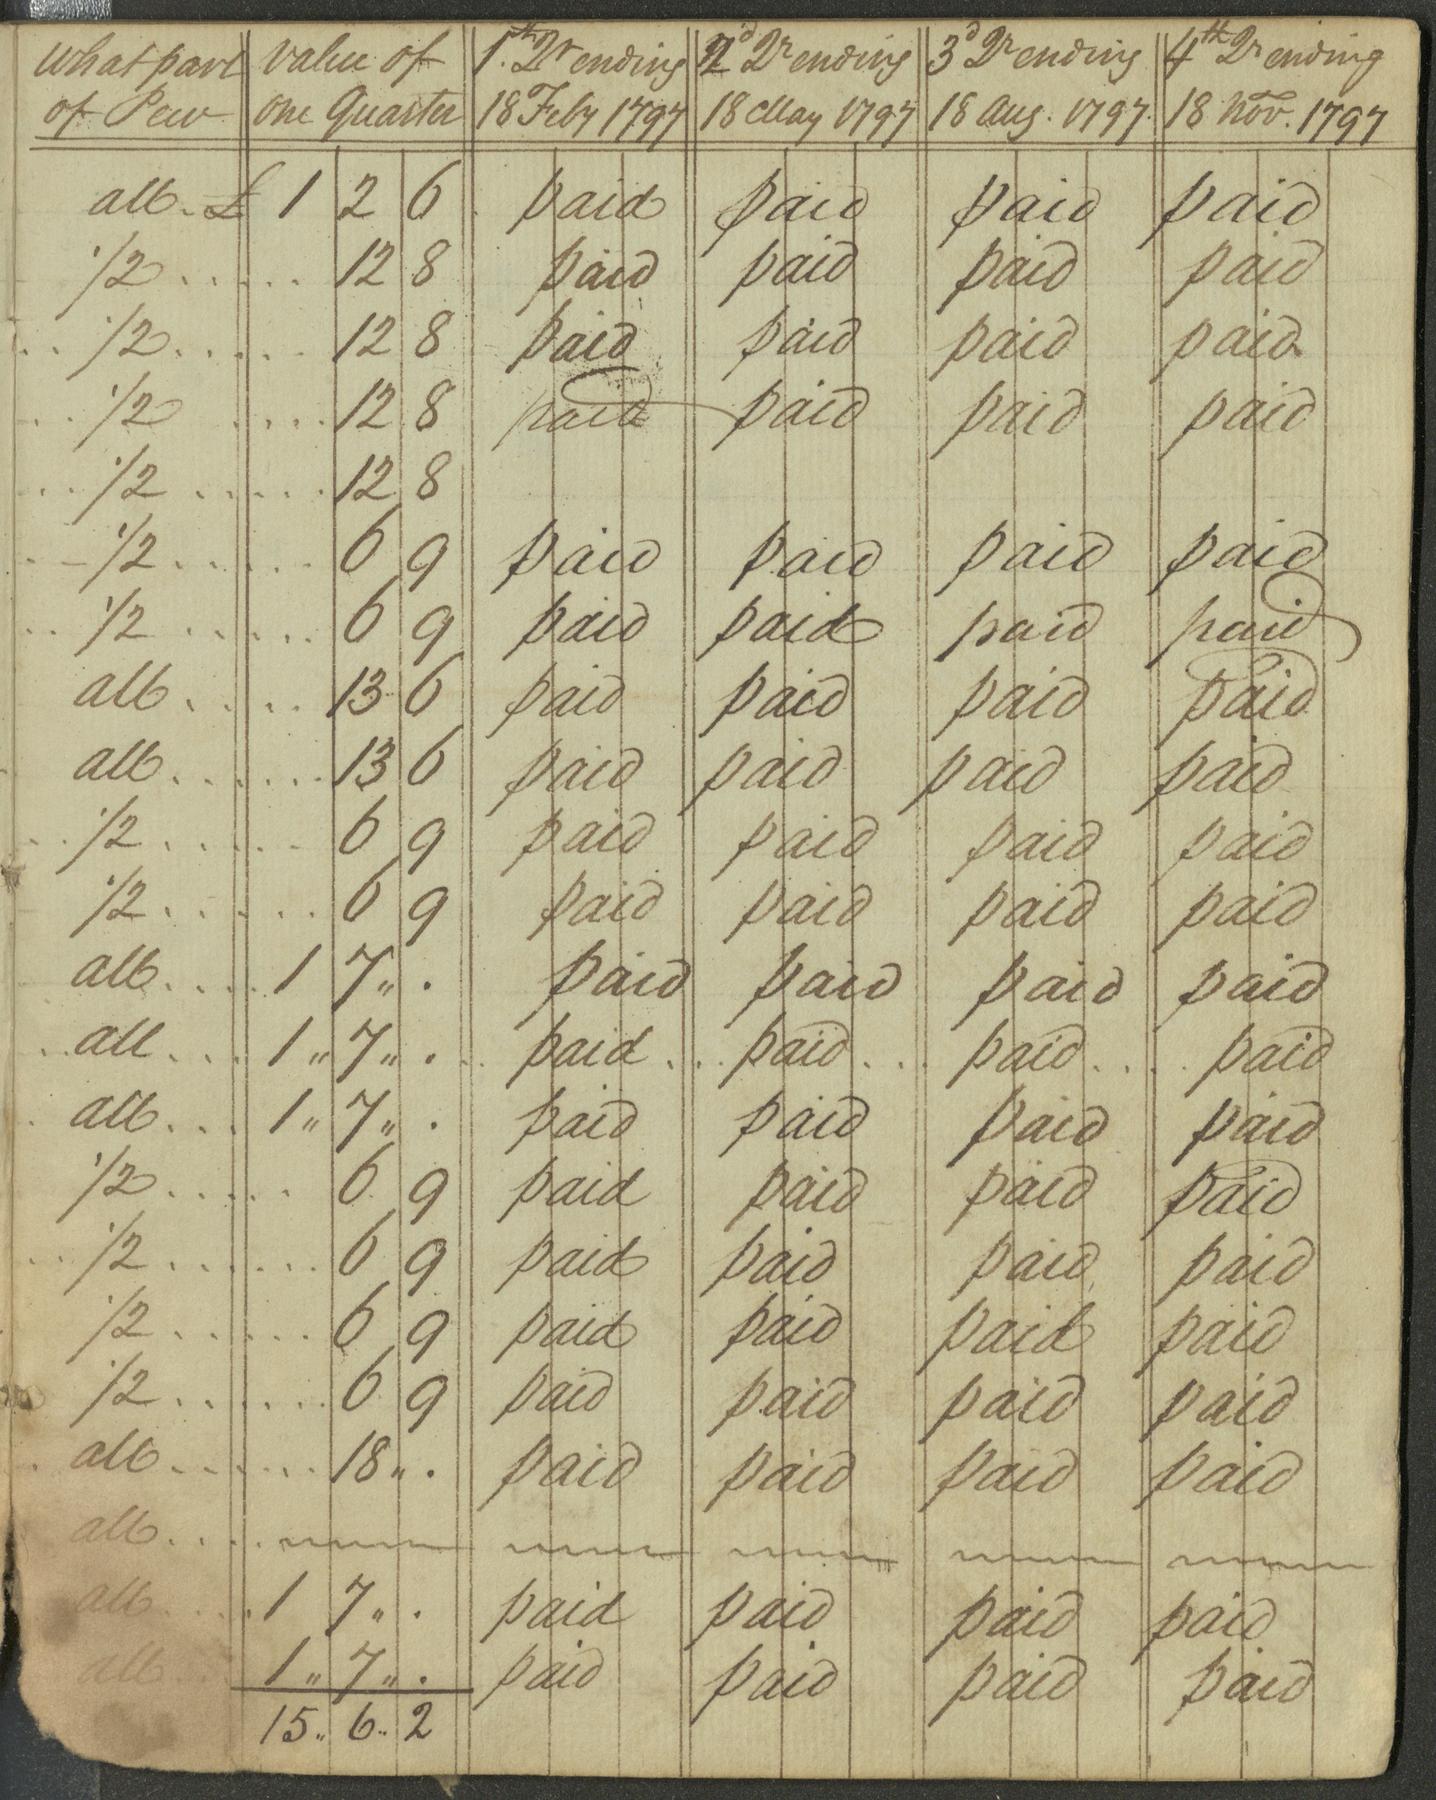 What part value of 1.th Qr ending 2d Qr ending 3d Qr ending 4th Qr ending
of Pew one Quarter 18 Feby 1797 18 May 1797 18 Aug. 1797. 18 Nov. 1797
all. £ 1 2 6 paid paid paid paid
1/2 ..... 12 8 paid paid paid paid
.. 1/2 ..... 12 8 paid paid paid paid
.. 1/2 .... 12 8 paid paid paid paid
.. 1/2 ..... 12 8
.. 1/2 ..... 6 9 paid paid paid paid
.. 1/2 ..... 6 9 paid paid paid paid
all .... 13 6 paid paid paid paid
all ...... 13 6 paid paid paid paid
.. 1/2 ..... 6 9 paid paid paid paid
1/2 ..... 6 9 paid paid paid paid
all .... 1 7 „ . paid paid paid paid
.. all .... 1 „ 7 „ . .. paid ... paid ... paid .... paid
. all ... 1 „ 7 „ . paid paid paid paid
1/2 ..... 6 9 paid paid paid paid
.. 1/2 ...... 6 9 paid paid paid paid
1/2 ...... 6 9 paid paid paid paid
1/2 ...... 6 9 paid paid paid paid
. all ...... 18 „ . paid paid paid paid
all ....
all .... 1 7 „ . paid paid paid paid
all .. 1 „ 7 „ . paid paid paid paid
15 „ 6 „ 2